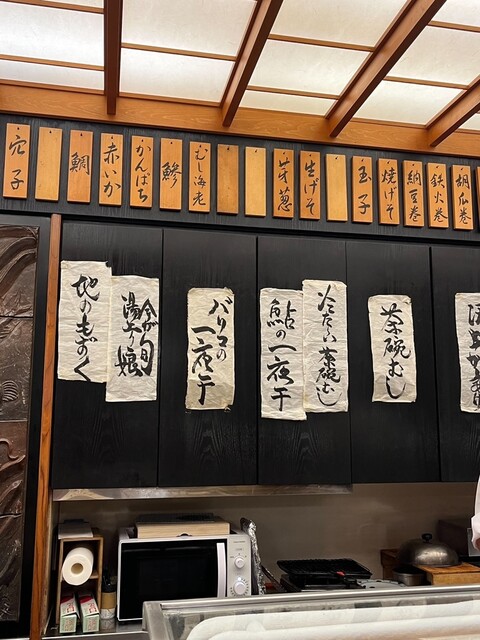 胡瓜巻
鉄火巻
納豆巻
焼げそ
玉子
生げそ
芽葱
むし海老
鯵
かんぱち
赤いか
鯛
穴子
茶碗むし
冷たい茶碗むし
鮎の一夜干
バリコの
一夜干
今が旬
湯あがり娘
地のもずく